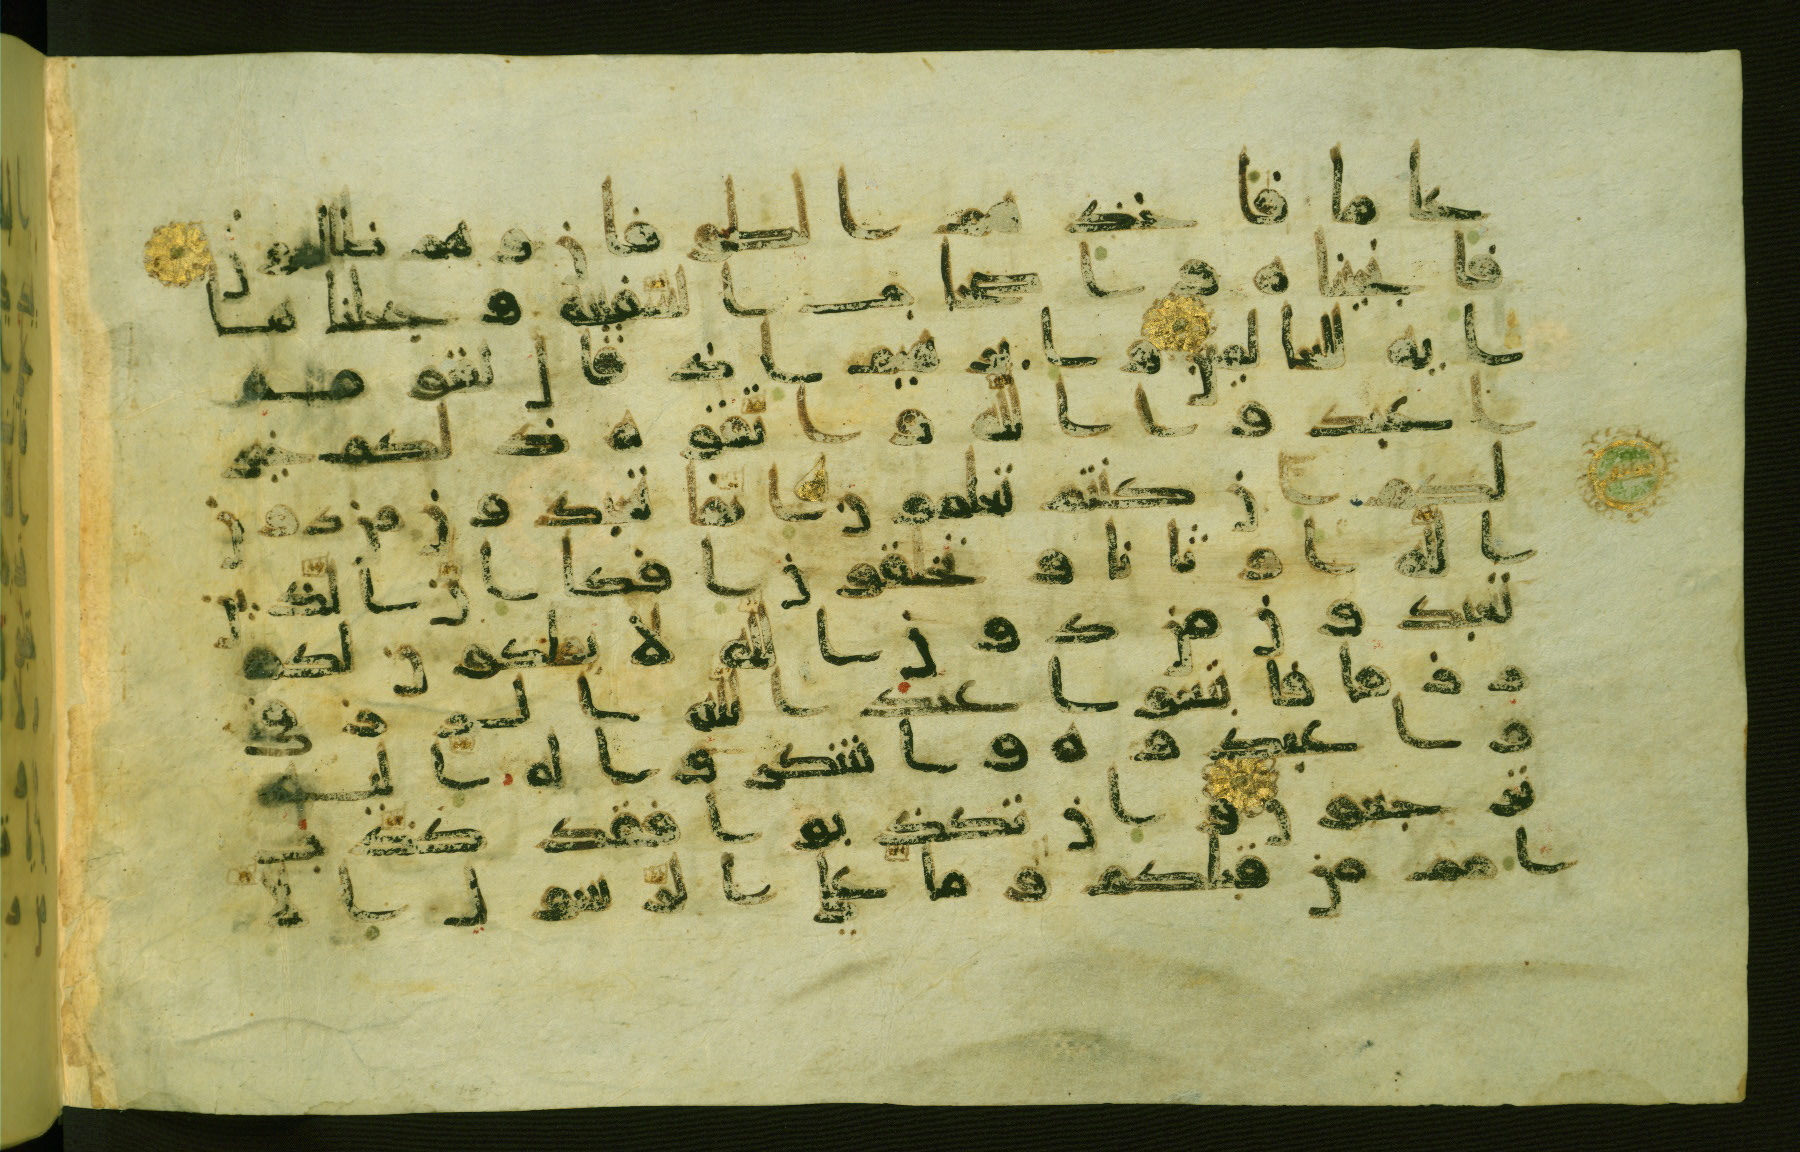 عاما فاخذهم الطوفان وهم ظالمون
فانجيناه واصحاب السفينة وجعلناها
اية للعالمين وابرهيم اذ قال لقومه
اعبدوا الله واتقوه ذلكم خير
لكم ان كنتم تعلمون انما تعبدون من دون
الله اوثانا وتخلقون افكا ان الذين
تعبدون من دون الله لا يملكون لكم
رزقا فابتغوا عند الله الرزق
واعبدوه واشكروا له اليه
ترجعون وان تكذبوا فقد كذب
امم من قبلكم وما على الرسول الا